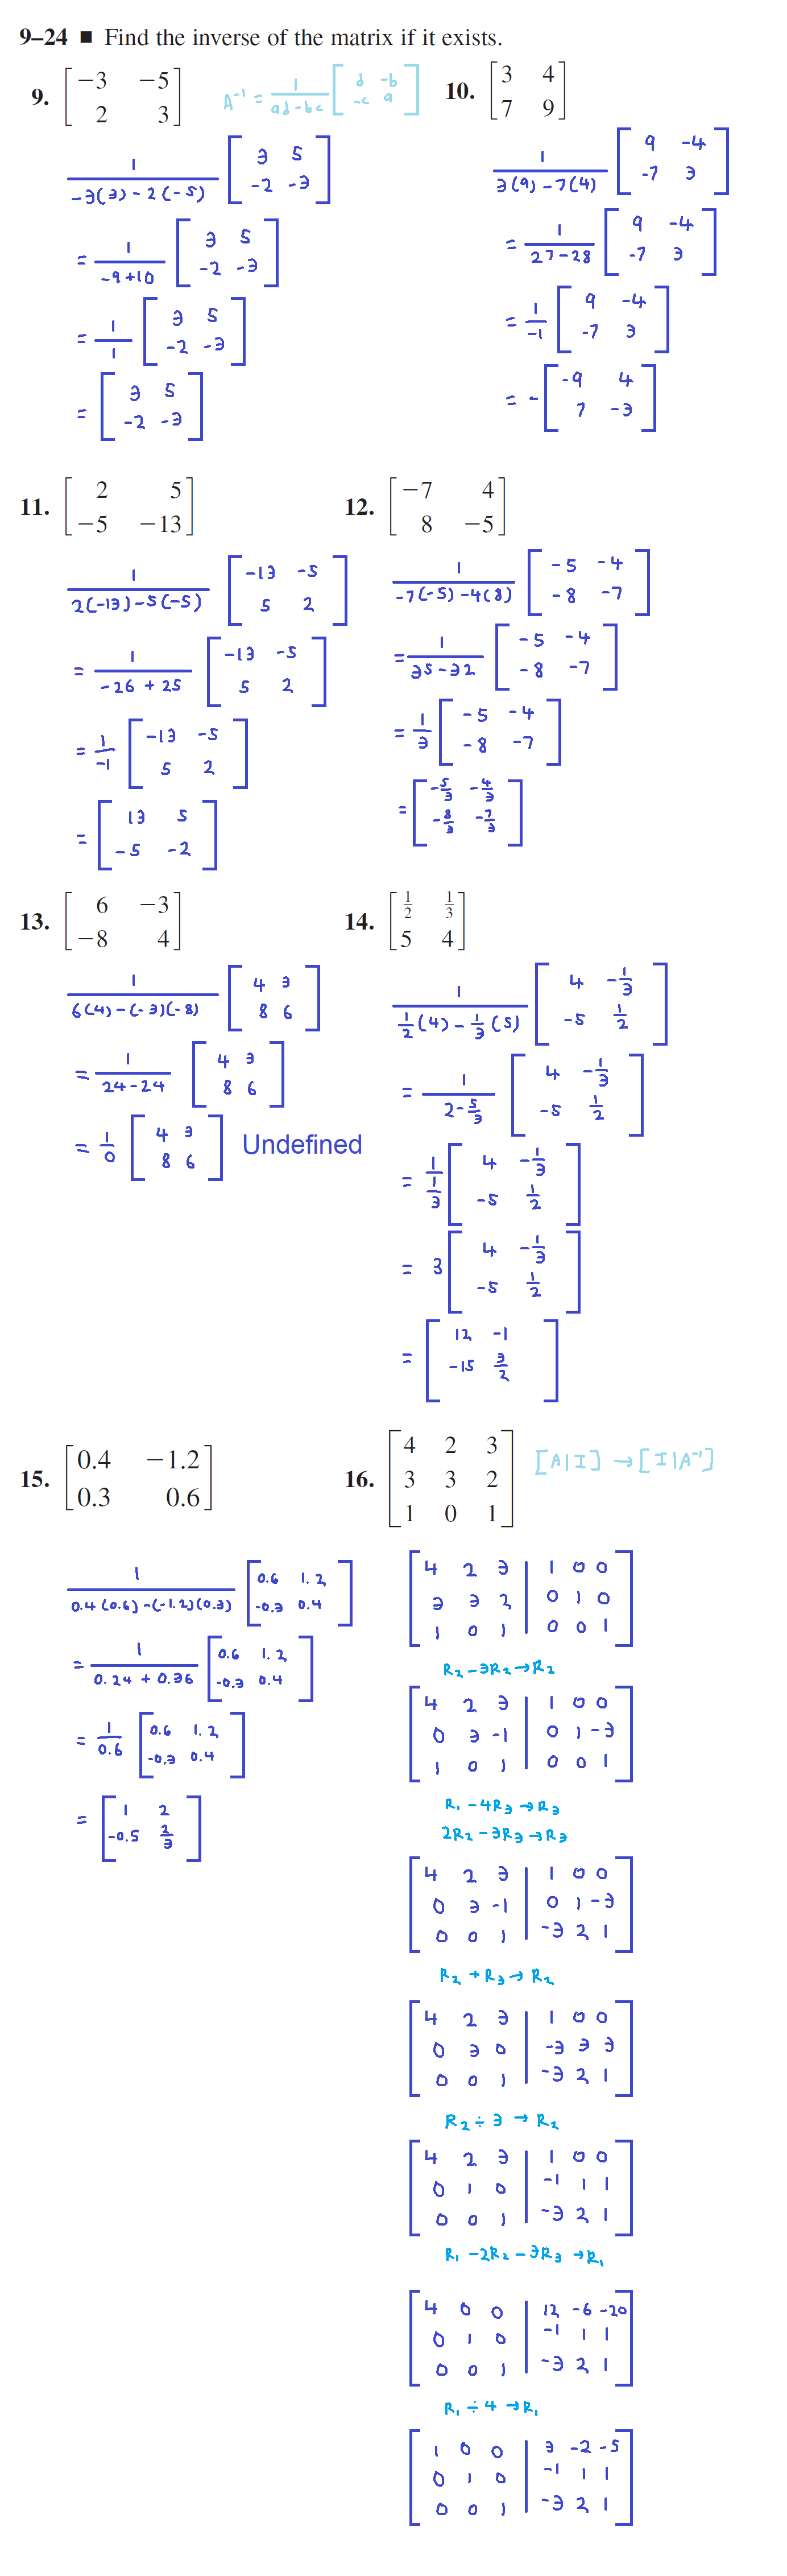 9–24 ■ Find the inverse of the matrix if it exists.
9. [ −3 −5 ; 2 3 ]
A⁻¹ = 1/(ad-bc) [ d -b ; -c a ]
1/(-3(3)-2(-5)) [ 3 5 ; -2 -3 ]
= 1/(-9+10) [ 3 5 ; -2 -3 ]
= 1/1 [ 3 5 ; -2 -3 ]
= [ 3 5 ; -2 -3 ]
10. [ 3 4 ; 7 9 ]
1/(3(9)-7(4)) [ 9 -4 ; -7 3 ]
= 1/(27-28) [ 9 -4 ; -7 3 ]
= 1/-1 [ 9 -4 ; -7 3 ]
= - [ -9 4 ; 7 -3 ]
11. [ 2 5 ; −5 −13 ]
1/(2(-13)-5(-5)) [ -13 -5 ; 5 2 ]
= 1/(-26+25) [ -13 -5 ; 5 2 ]
= 1/-1 [ -13 -5 ; 5 2 ]
= [ 13 5 ; -5 -2 ]
12. [ −7 4 ; 8 −5 ]
1/(-7(-5)-4(8)) [ -5 -4 ; -8 -7 ]
= 1/(35-32) [ -5 -4 ; -8 -7 ]
= 1/3 [ -5 -4 ; -8 -7 ]
= [ -5/3 -4/3 ; -8/3 -7/3 ]
13. [ 6 −3 ; −8 4 ]
1/(6(4)-(-3)(-8)) [ 4 3 ; 8 6 ]
= 1/(24-24) [ 4 3 ; 8 6 ]
= 1/0 [ 4 3 ; 8 6 ] Undefined
14. [ 1/2 1/3 ; 5 4 ]
1/(1/2(4)-1/3(5)) [ 4 -1/3 ; -5 1/2 ]
= 1/(2-5/3) [ 4 -1/3 ; -5 1/2 ]
= 1/(1/3) [ 4 -1/3 ; -5 1/2 ]
= 3 [ 4 -1/3 ; -5 1/2 ]
= [ 12 -1 ; -15 3/2 ]
15. [ 0.4 −1.2 ; 0.3 0.6 ]
1/(0.4(0.6)-(-1.2)(0.3)) [ 0.6 1.2 ; -0.3 0.4 ]
= 1/(0.24+0.36) [ 0.6 1.2 ; -0.3 0.4 ]
= 1/0.6 [ 0.6 1.2 ; -0.3 0.4 ]
= [ 1 2 ; -0.5 2/3 ]
16. [ 4 2 3 ; 3 3 2 ; 1 0 1 ]
[A|I] → [I|A⁻¹]
[ 4 2 3 | 1 0 0 ; 3 3 2 | 0 1 0 ; 1 0 1 | 0 0 1 ]
R₂-3R₂→R₂
[ 4 2 3 | 1 0 0 ; 0 3 -1 | 0 1 -3 ; 1 0 1 | 0 0 1 ]
R₁-4R₃→R₃
2R₂-3R₃→R₃
[ 4 2 3 | 1 0 0 ; 0 3 -1 | 0 1 -3 ; 0 0 1 | -3 2 1 ]
R₂+R₃→R₂
[ 4 2 3 | 1 0 0 ; 0 3 0 | -3 3 3 ; 0 0 1 | -3 2 1 ]
R₂÷3→R₂
[ 4 2 3 | 1 0 0 ; 0 1 0 | -1 1 1 ; 0 0 1 | -3 2 1 ]
R₁-2R₂-3R₃→R₁
[ 4 0 0 | 12 -6 -20 ; 0 1 0 | -1 1 1 ; 0 0 1 | -3 2 1 ]
R₁÷4→R₁
[ 1 0 0 | 3 -2 -5 ; 0 1 0 | -1 1 1 ; 0 0 1 | -3 2 1 ]